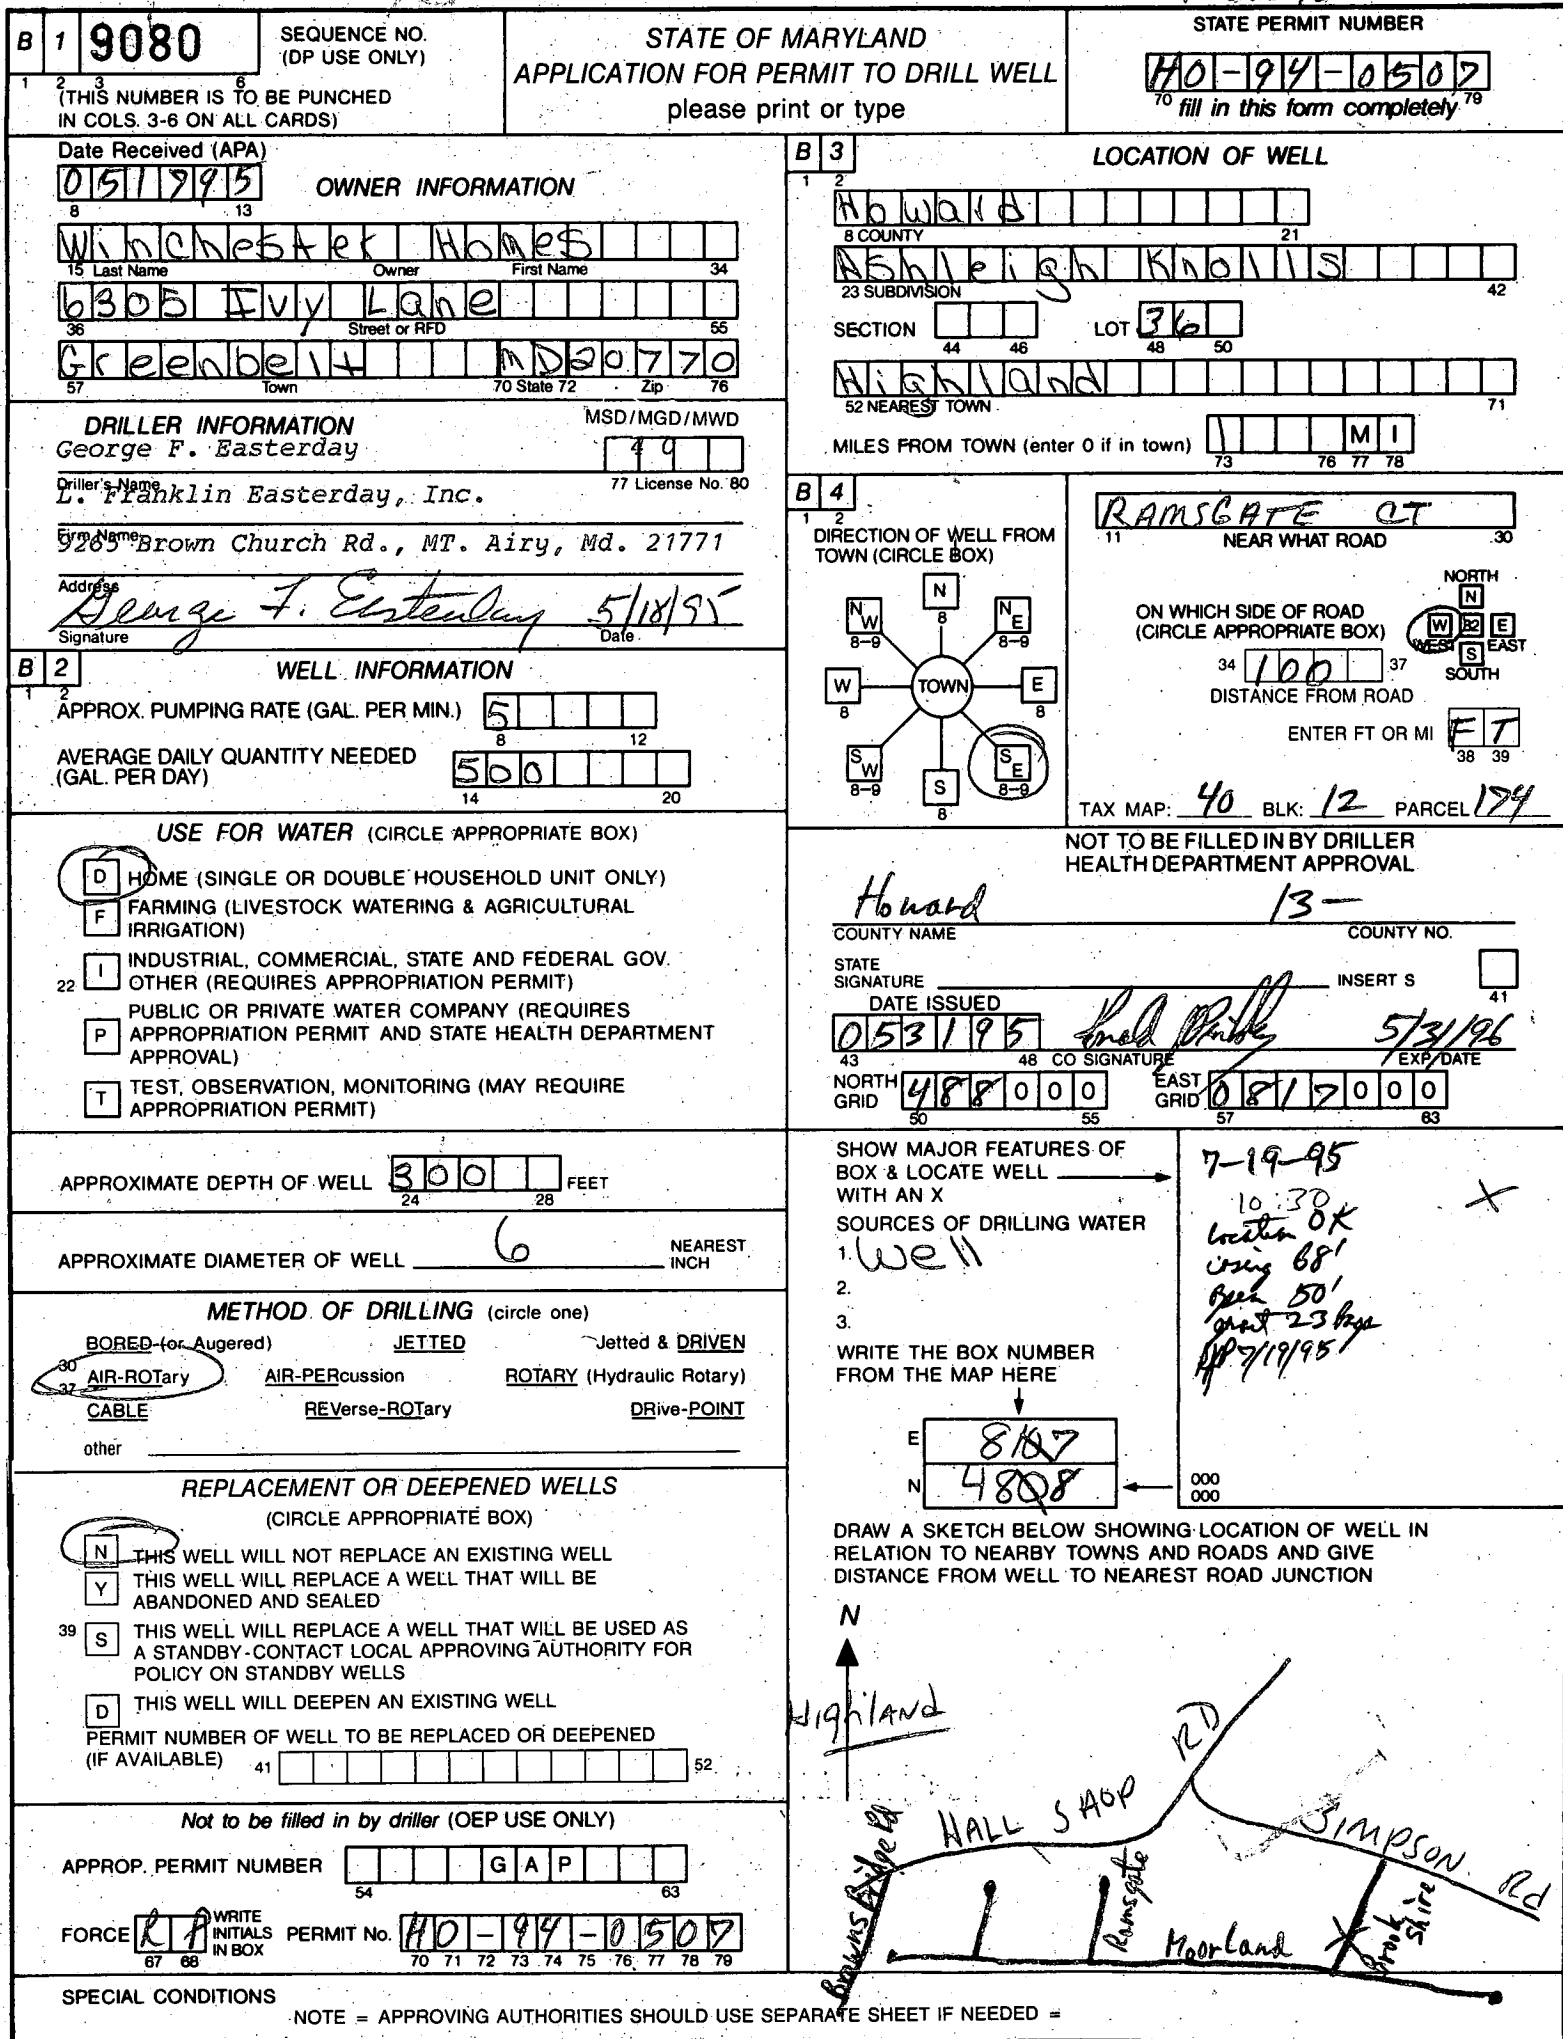 B 1 9080
SEQUENCE NO.
(DP USE ONLY)
1 2 3 6
(THIS NUMBER IS TO BE PUNCHED
IN COLS. 3-6 ON ALL CARDS)
STATE OF MARYLAND
APPLICATION FOR PERMIT TO DRILL WELL
please print or type
STATE PERMIT NUMBER
HO-94-0507
70 fill in this form completely 79
Date Received (APA)
051795
8 13
OWNER INFORMATION
Winchester Homes
15 Last Name Owner First Name 34
6305 Ivy Lane
36 Street or RFD 55
Greenbelt MD20770
57 Town 70 State 72 Zip 76
DRILLER INFORMATION
MSD/MGD/MWD
George F. Easterday
49
Driller's Name
77 License No. 80
L. Franklin Easterday, Inc.
Firm Name
9265 Brown Church Rd., MT. Airy, Md. 21771
Address
George F. Easterday 5/18/95
Signature Date
B 2
1 2
WELL INFORMATION
APPROX. PUMPING RATE (GAL. PER MIN.) 5
8 12
AVERAGE DAILY QUANTITY NEEDED
(GAL. PER DAY) 500
14 20
USE FOR WATER (CIRCLE APPROPRIATE BOX)
D HOME (SINGLE OR DOUBLE HOUSEHOLD UNIT ONLY)
F FARMING (LIVESTOCK WATERING & AGRICULTURAL
IRRIGATION)
22 I INDUSTRIAL, COMMERCIAL, STATE AND FEDERAL GOV.
OTHER (REQUIRES APPROPRIATION PERMIT)
P PUBLIC OR PRIVATE WATER COMPANY (REQUIRES
APPROPRIATION PERMIT AND STATE HEALTH DEPARTMENT
APPROVAL)
T TEST, OBSERVATION, MONITORING (MAY REQUIRE
APPROPRIATION PERMIT)
APPROXIMATE DEPTH OF WELL 300 FEET
24 28
APPROXIMATE DIAMETER OF WELL 6 NEAREST
INCH
METHOD OF DRILLING (circle one)
BORED (or Augered) JETTED Jetted & DRIVEN
30
37
AIR-ROTary AIR-PERcussion ROTARY (Hydraulic Rotary)
CABLE REVerse-ROTary DRive-POINT
other
REPLACEMENT OR DEEPENED WELLS
(CIRCLE APPROPRIATE BOX)
N THIS WELL WILL NOT REPLACE AN EXISTING WELL
Y THIS WELL WILL REPLACE A WELL THAT WILL BE
ABANDONED AND SEALED
39 S THIS WELL WILL REPLACE A WELL THAT WILL BE USED AS
A STANDBY-CONTACT LOCAL APPROVING AUTHORITY FOR
POLICY ON STANDBY WELLS
D THIS WELL WILL DEEPEN AN EXISTING WELL
PERMIT NUMBER OF WELL TO BE REPLACED OR DEEPENED
(IF AVAILABLE) 41 52
Not to be filled in by driller (OEP USE ONLY)
APPROP. PERMIT NUMBER GAP
54 63
FORCE RP WRITE
INITIALS
IN BOX PERMIT No. HO-94-0507
67 68 70 71 72 73 74 75 76 77 78 79
B 3
1 2
LOCATION OF WELL
Howard
8 COUNTY 21
Ashleigh Knolls
23 SUBDIVISION 42
SECTION LOT 36
44 46 48 50
Highland
52 NEAREST TOWN 71
MILES FROM TOWN (enter 0 if in town) 1 MI
73 76 77 78
B 4
1 2
DIRECTION OF WELL FROM
TOWN (CIRCLE BOX)
N
8
NW NE
8-9 8-9
W TOWN E
8 8
SW SE
8-9 8-9
S
8
RAMSGATE CT
11 NEAR WHAT ROAD 30
ON WHICH SIDE OF ROAD
(CIRCLE APPROPRIATE BOX)
NORTH
N
W B2 E
WEST EAST
S
SOUTH
34 100 37
DISTANCE FROM ROAD
ENTER FT OR MI FT
38 39
TAX MAP: 40 BLK: 12 PARCEL 174
NOT TO BE FILLED IN BY DRILLER
HEALTH DEPARTMENT APPROVAL
Howard 13-
COUNTY NAME COUNTY NO.
STATE
SIGNATURE INSERT S
41
DATE ISSUED
053195 5/31/96
43 48 CO SIGNATURE EXP/DATE
NORTH
GRID 488000 EAST
GRID 0817000
50 55 57 63
SHOW MAJOR FEATURES OF
BOX & LOCATE WELL
WITH AN X
SOURCES OF DRILLING WATER
1. Well
2.
3.
WRITE THE BOX NUMBER
FROM THE MAP HERE
E 817
N 488
7-19-95
10:30
X
Location OK
casing 68'
Open 50'
grout 23 bags
7/19/95
000
000
DRAW A SKETCH BELOW SHOWING LOCATION OF WELL IN
RELATION TO NEARBY TOWNS AND ROADS AND GIVE
DISTANCE FROM WELL TO NEAREST ROAD JUNCTION
N
Highland
HALL SHOP RD
SIMPSON Rd
Browns Bridge Rd
Ramsgate
Moorland
X
Brook Shire
SPECIAL CONDITIONS
NOTE = APPROVING AUTHORITIES SHOULD USE SEPARATE SHEET IF NEEDED =